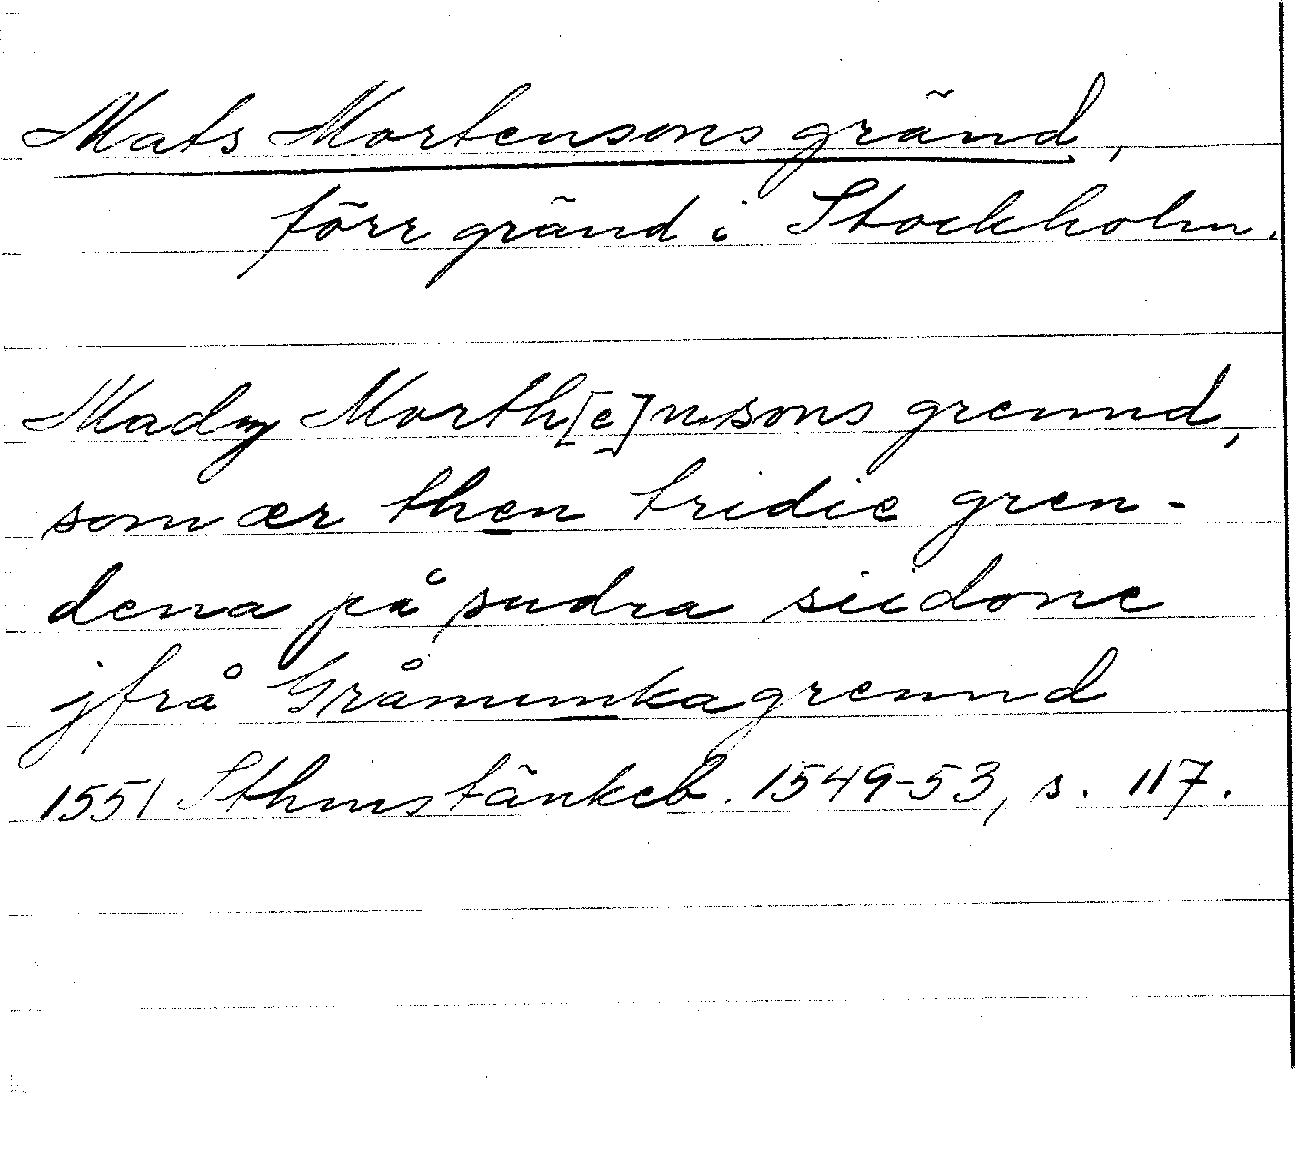 Mats Mortensons gränd,
förr gränd i Stockholm.
Madz Morth[e]nsons grennd,
som ær then tridie gren-
dena på sudra siidone
jfrå Gråmunkagrennd
1551 Sthmstänkeb. 1549-53, s. 117.